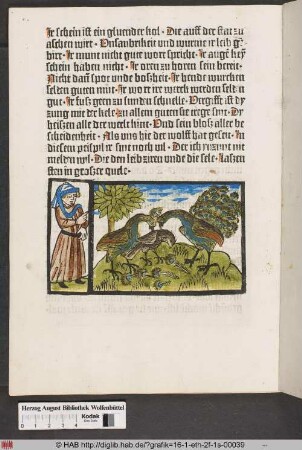 Ir schein ist ein gluender kol · Die auff der stat zu
aschen wirt · Unsauberkeit und wurme ir leib ge
birt · Ir munt nicht guter wort spricht · Ir augen keyn
schein haben nicht · Ir oren zu horen sein bereit ·
Nicht dann spot unde bosheit · Ir hende wurcken
selden guten mut · Ir werck werden selden
gut · Ir fuß zu sunden schnelle · Vergifft ist dy
zung mit der helle · Zu allem guten sie trege sint · Dy
heissen alle der werlt kint · Und sein bloß aller be
scheidenheit · Als uns hie der wolff hat gesen · In
diesem peispil ir sint noch vil · Der ich nicht
melden wil · Die den leib ziren und die sele · Lassen
sten in grosser quele ·
Herzog August Bibliothek Wolfenbüttel
Kodak
© HAB http://diglib.hab.de/?grafik=16-1-eth-2f-1s-00039